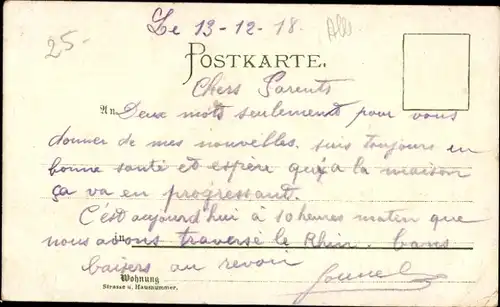 Le 13-12-18.
25-
POSTKARTE.
Chers Parents
An
Deux mots seulement pour vous
donner de mes nouvelles. suis toujours en
bonne santé et espère qu'à la maison
ça va en progressant.
C'est aujourd'hui à 10 heures maten que
nous avons traversé le Rhin. bons
in
baisers au revoir
Wohnung
Strasse u. Hausnummer.